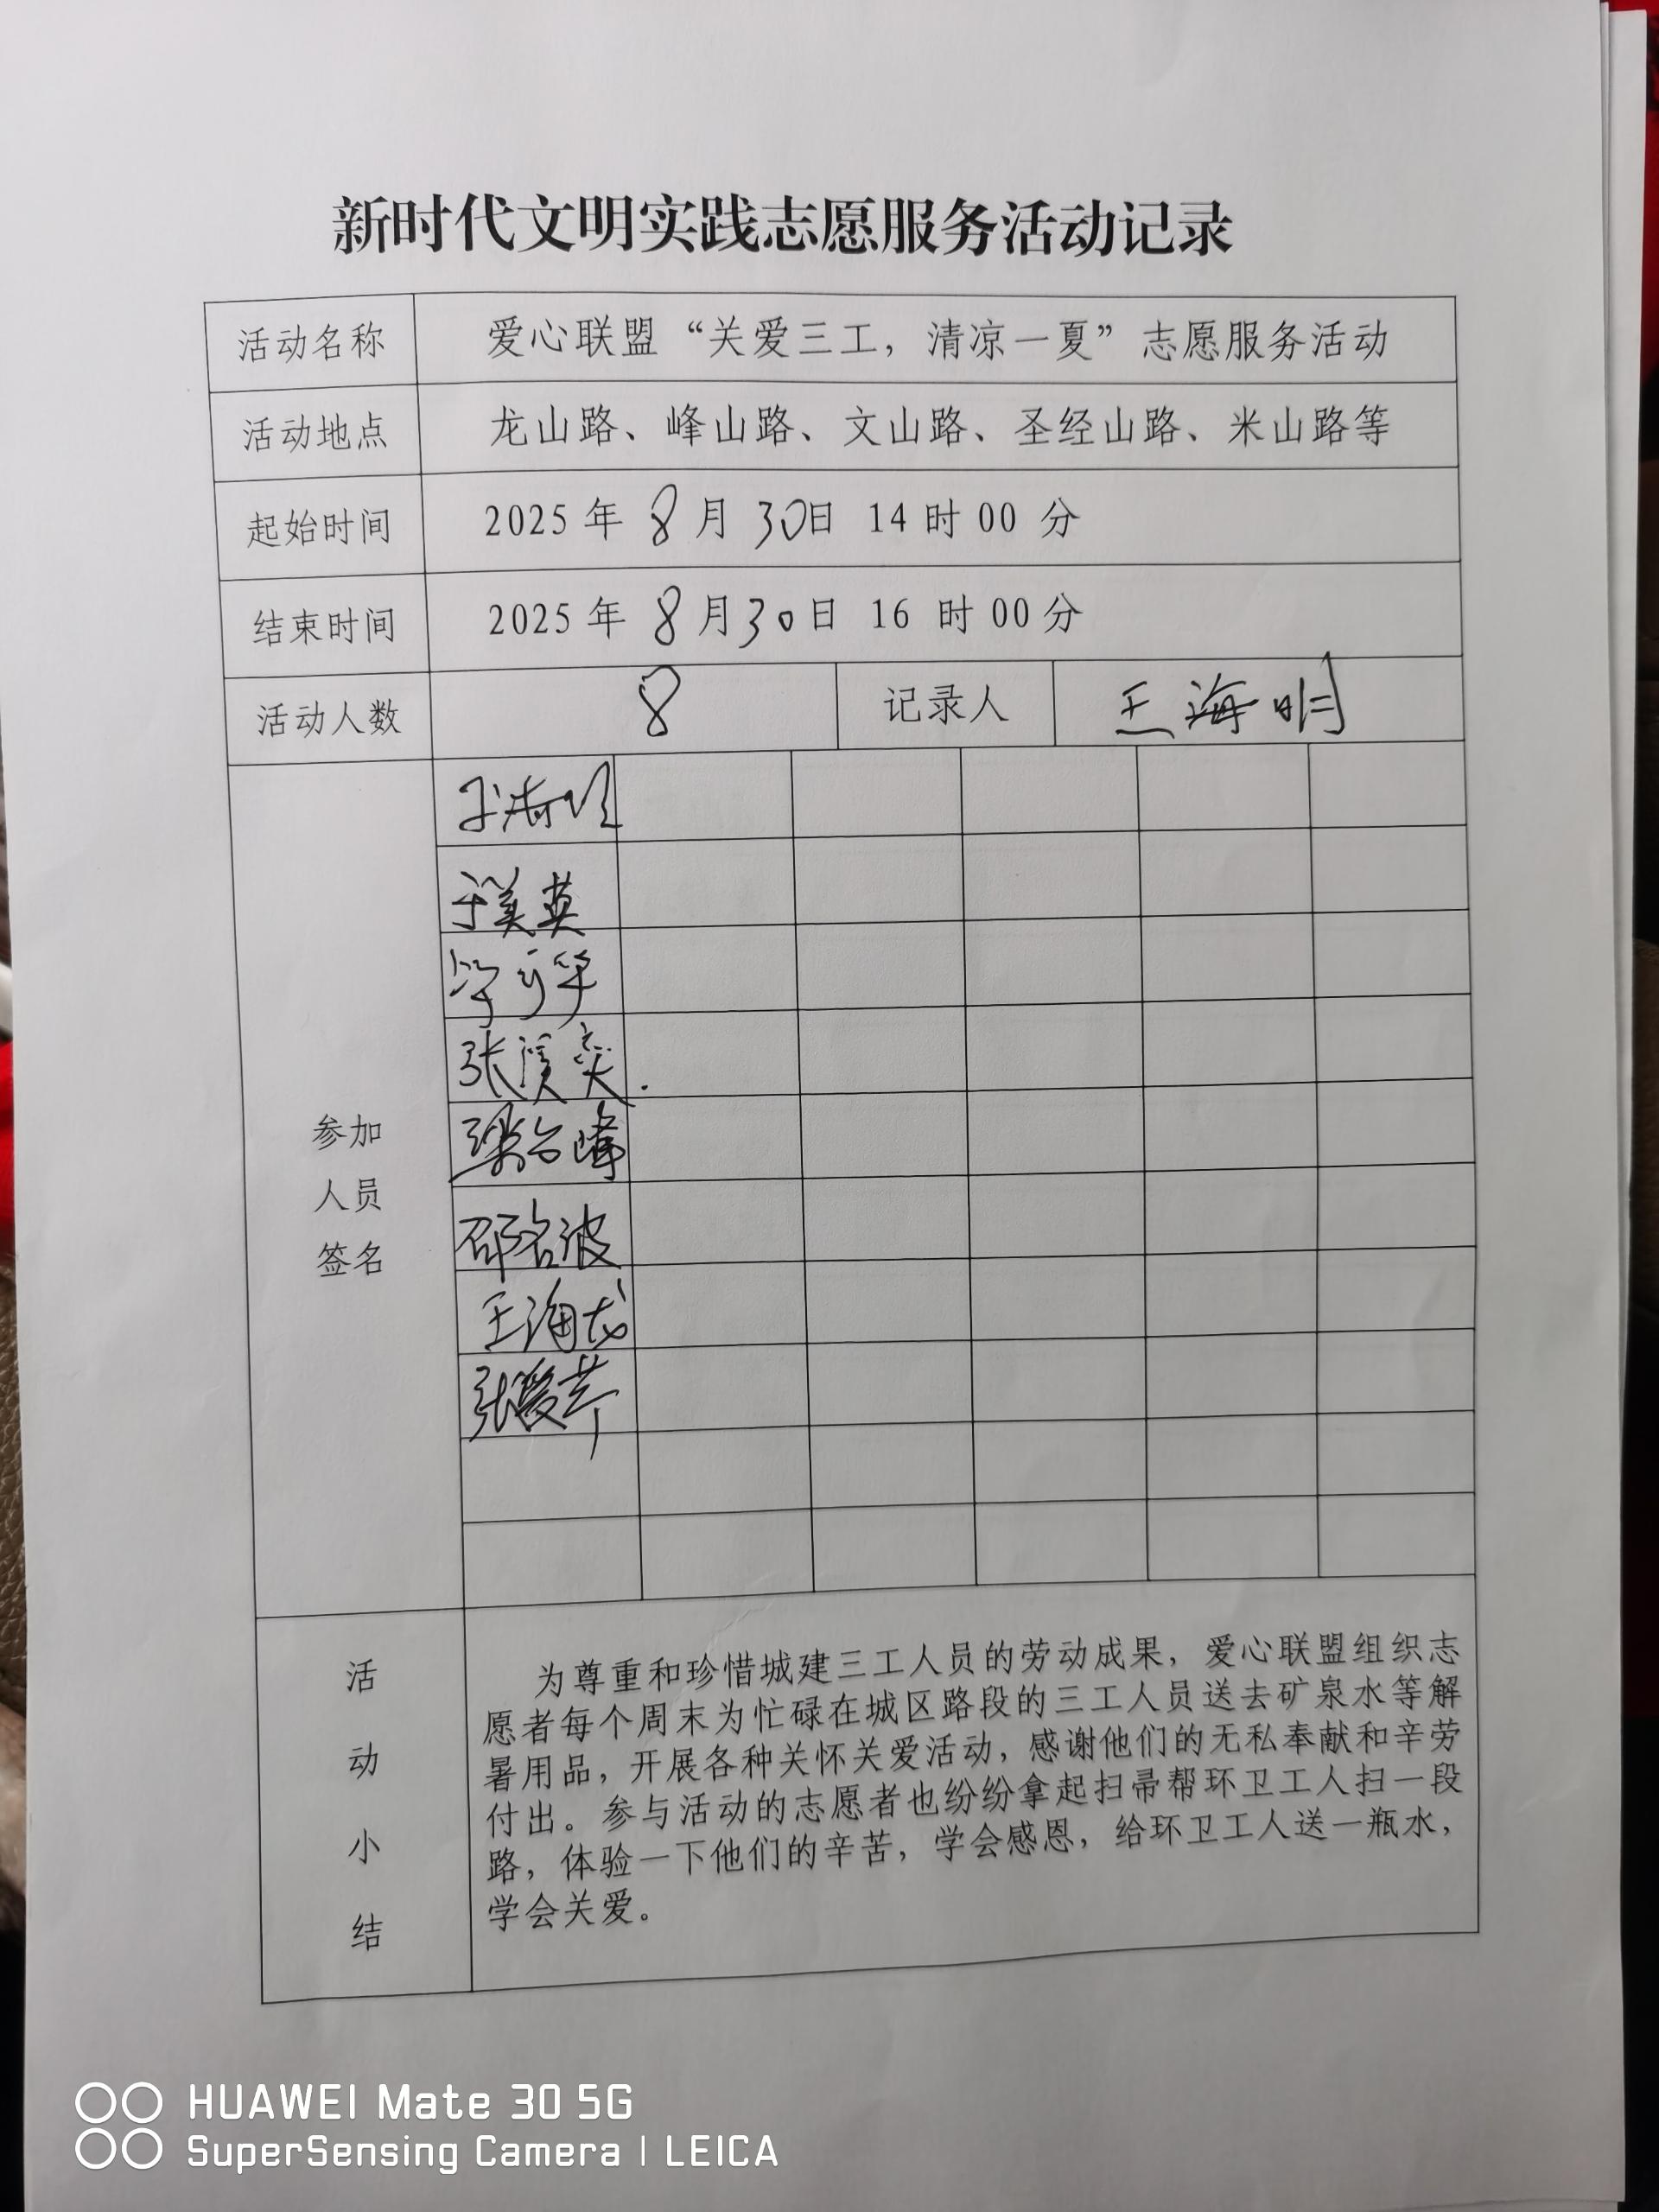 新时代文明实践志愿服务活动记录
活动名称 爱心联盟“关爱三工，清凉一夏”志愿服务活动
活动地点 龙山路、峰山路、文山路、圣经山路、米山路等
起始时间 2025年 8月 30日 14时00分
结束时间 2025年 8月30日 16时00分
活动人数 8 记录人 王海明
参加
人员
签名
于美英
张
邵名波
王海龙
张爱芹
活
动
小
结
为尊重和珍惜城建三工人员的劳动成果，爱心联盟组织志
愿者每个周末为忙碌在城区路段的三工人员送去矿泉水等解
暑用品，开展各种关怀关爱活动，感谢他们的无私奉献和辛劳
付出。参与活动的志愿者也纷纷拿起扫帚帮环卫工人扫一段
路，体验一下他们的辛苦，学会感恩，给环卫工人送一瓶水，
学会关爱。
HUAWEI Mate 30 5G
SuperSensing Camera | LEICA